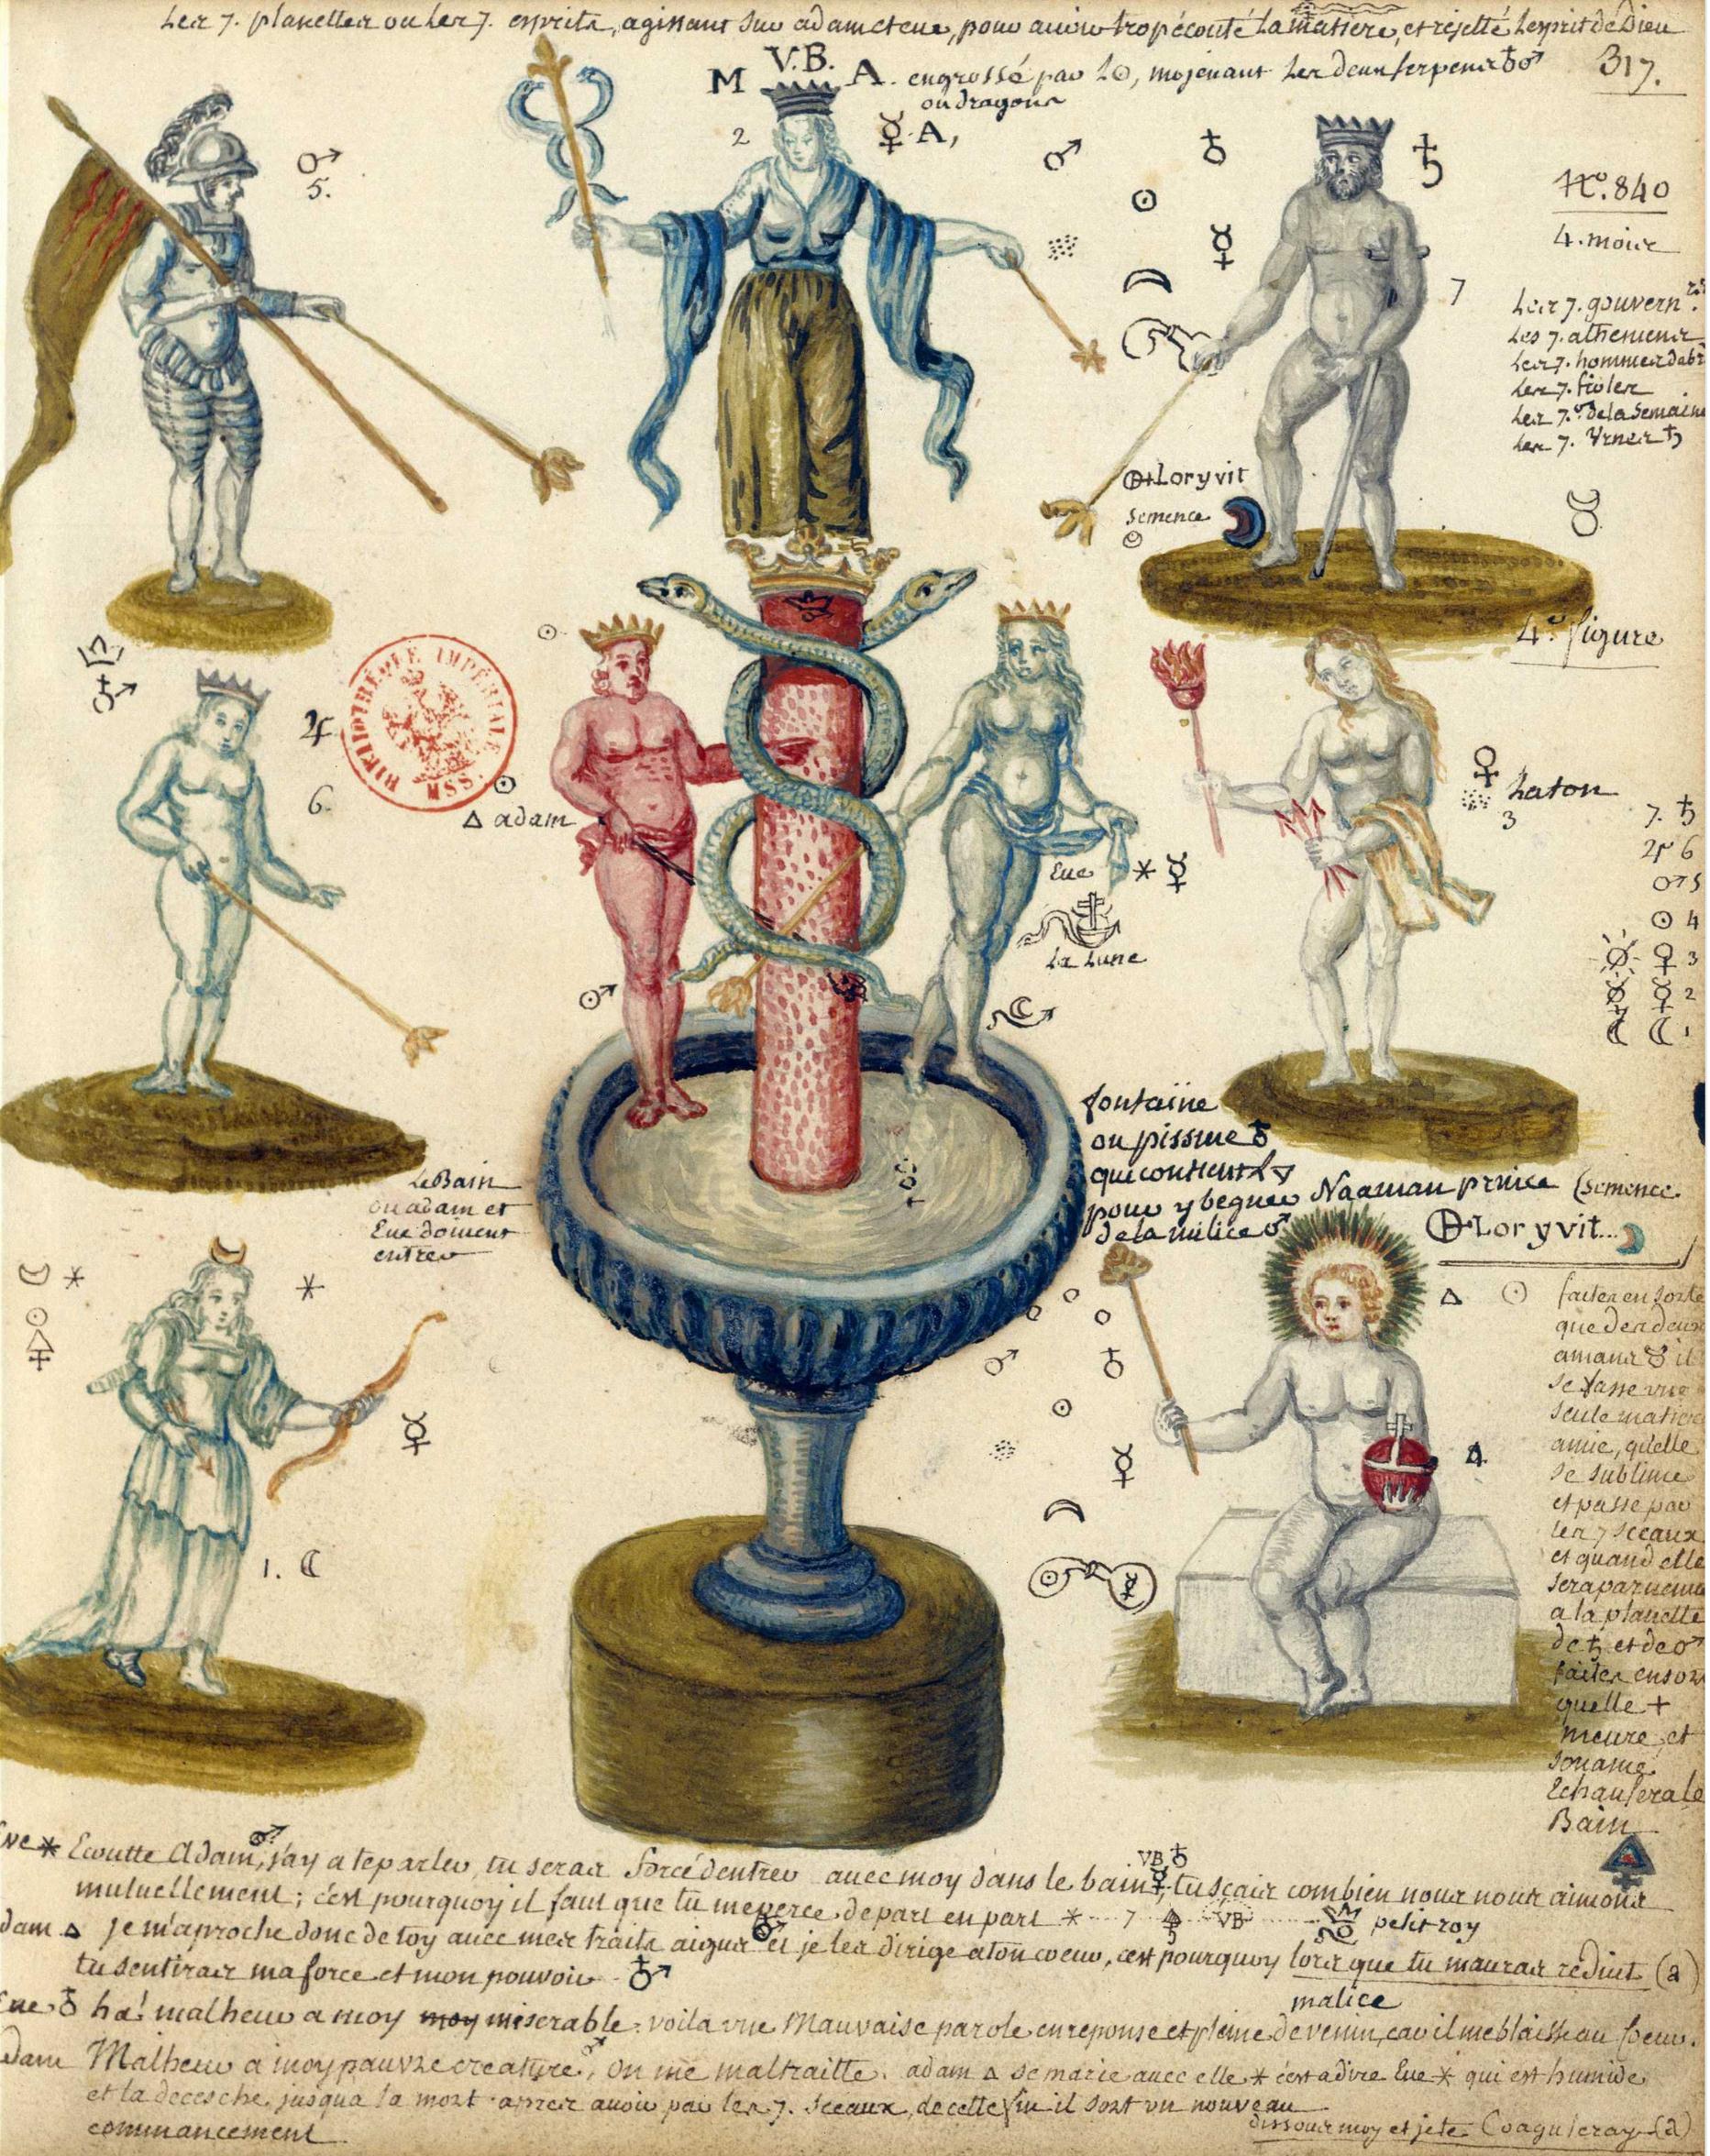 Les 7. planettes ou Les 7. esprits, agissant sur adam et eue, pour auoir trop écouté La matiere, et rejetté Lesprit de Dieu
M V.B. A. engrossé par L☉, mojenant Les deux serpents ♁♂
ou dragons
317.
2 ☿ A,
♂
5.
♂ ♁ ♄
☉
☿
☾
7
N.º 840
4. mois
Les 7. gouvern.rs
Les 7. atheniens
Les 7. hommes dab
Les 7. fioles
Les 7. de la Semaine
Les 7. Vrnes ♄
⊕+Loryvit
Semence
☉
4.e figure
☉
♁♂
♃
6.
BIBLIOTHÈQUE IMPÉRIALE
MSS.
☉
△ adam
Eue * ☿
La Lune
♀
Laton
3
7. ♄
♃ 6
♂ 5
☉ 4
♀ 3
☿ 2
☾ 1
♂
Le Bain
ou adam et
Eue doiuent
entrer
fontaine
ou pissine ♁
qui contient L▽
pour y begner Naaman prince
de la milice ♂
(Semence.
⊕Loryvit...
☾ *
☉
*
☿
1. ☾
△ ☉
♂ ♁
☉
☿
☾
faites en sorte
que des deux
amans ☿ il
se fasse vne
seule matiere
amie, qu'elle
se sublime
et passe par
les 7 sceaux
et quand elle
sera paruenue
a la planette
de ♄ et de ♂
faites en sor
quelle +
meure, et
son ame
Echaufera le
Bain
Eve * Ecoutte Adam ♂, j'ay a te parler, tu seras forcé dentrer auec moy dans le bain VB ♁ ☿, tu scais combien nous nous aimons
mutuellement; c'est pourquoy il faut que tu me perce de part en part * 7 VB petit roy
dam △ je m'aproche donc de toy auec mes traits aigus ♂ et je les dirige a ton coeur, cest pourquoy lors que tu mauras reduit (a)
tu sentiras ma force et mon pouvoir ♁♂
malice
Eue ♁ ha! malheur a moy moy miserable. voila vne Mauvaise parole en reponse et pleine de venin, car il me blaisse au Coeur.
dam Malheur a moy pauvre creature ♂, on me maltraitte. adam △ se marie auec elle * c'est a dire Eue * qui est humide
et la deceche, jusqua la mort apres auoir par les 7. sceaux, de cette fin il sort vn nouveau
commancement
dissous moy et je te Coaguleray (a)